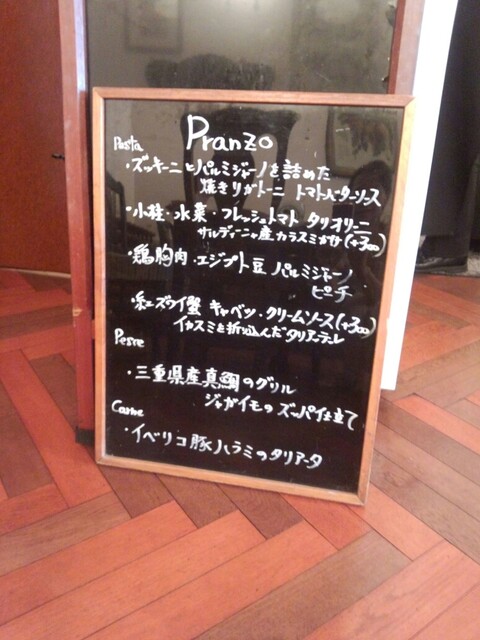 Pranzo
Pasta
・ズッキーニとパルミジャーノを詰めた
焼きリガトーニ トマトバターソース
・小柱・水菜・フレッシュトマト タリオリーニ
サルディーニャ産カラスミがけ(+300)
・鶏胸肉・エジプト豆 パルミジャーノ
ピーチ
・紅ズワイ蟹 キャベツ・クリームソース(+300)
イカスミを折り込んだタリアテーレ
Pesce
・三重県産真鯛のグリル
ジャガイモのズッパ仕立て
Carne
・イベリコ豚ハラミのタリアータ